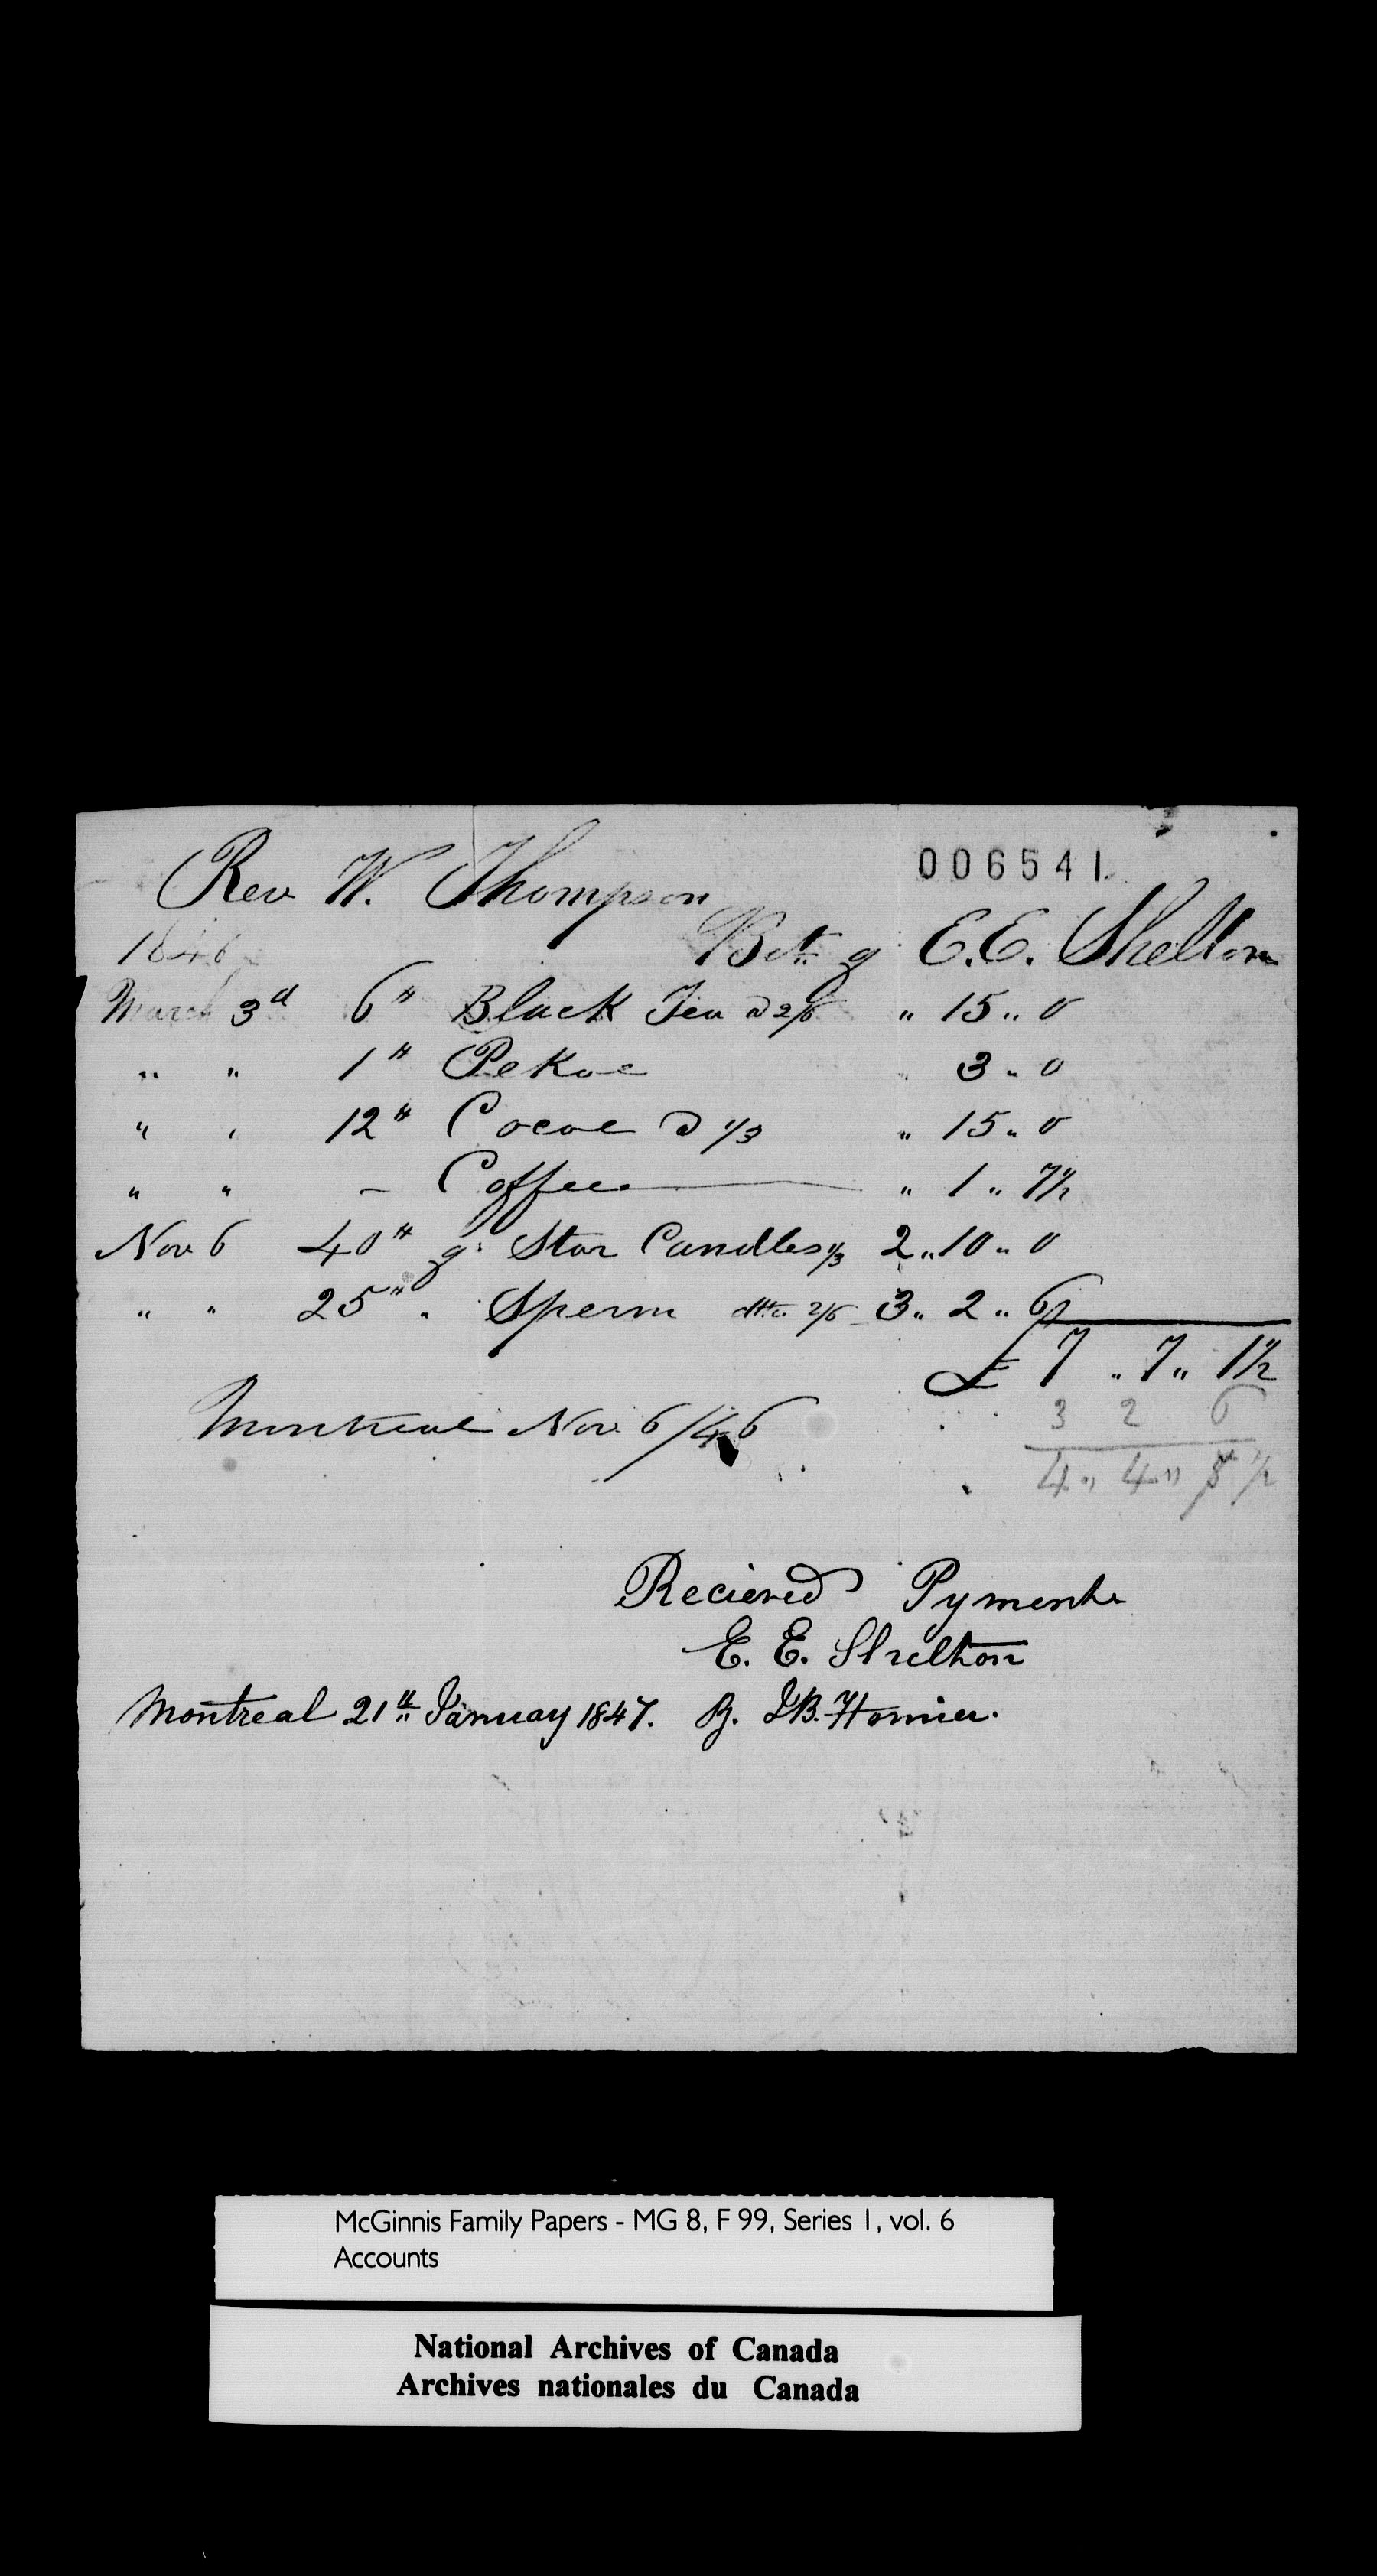 006541
Rev W. Thompson
1846 Bot of E.E. Shelton
March 3d 6 " Black Tea @ 2/6 " 15 " 0
" " 1 " Pekoe 3 " 0
" " 12 " Cocoe @ 1/3 " 15 " 0
" " - Coffee " 1 " 7½
Nov 6 40 " of Star Candles 1/3 2 " 10 " 0
" " 25 " " Sperm ditto 2/6 3 " 2 " 6
£ 7 " 7 " 1½
3 2 6
4 " 4 " ½
Montreal Nov 6/46
Recieved Pyment
E. E. Shelton
Montreal 21st January 1847. By J.B.
McGinnis Family Papers - MG 8, F 99, Series 1, vol. 6
Accounts
National Archives of Canada
Archives nationales du Canada